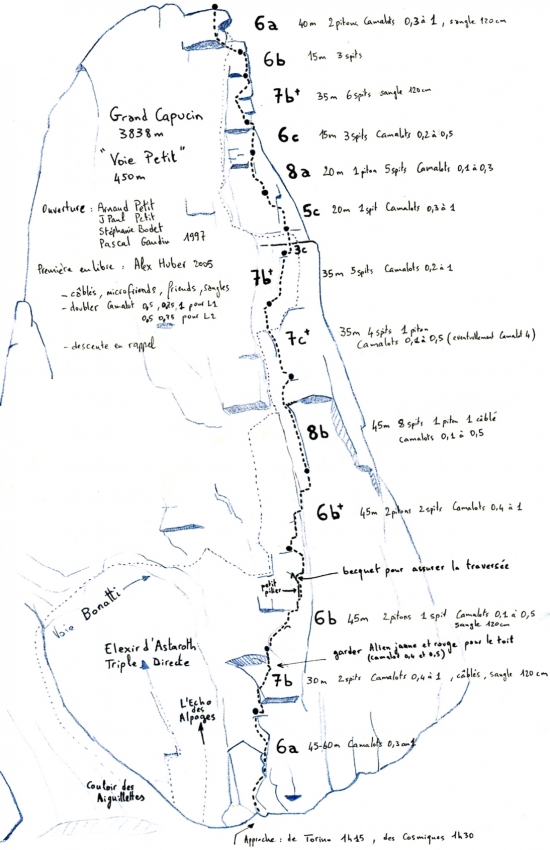 6a 40m 2 pitons Camalots 0,3 à 1, sangle 120cm
6b 15m 3 spits
7b+ 35m 6 spits sangle 120cm
Grand Capucin
3838m
"Voie Petit"
450m
6c 15m 3 spits Camalots 0,2 à 0,5
8a 20m 1 piton 5 spits Camalots 0,1 à 0,3
5c 20m 1 spit Camalots 0,3 à 1
Ouverture : Arnaud Petit
J Paul Petit
Stéphanie Bodet
Pascal Gaudin 1997
3c
Première en libre : Alex Huber 2005
7b+ 35m 5 spits Camalots 0,2 à 1
- câblés, microfriends, friends, sangles
- doubler Camalot 0,5, 0,75, 1 pour L1
0,5 0,75 pour L2
- descente en rappel
7c+ 35m 4 spits 1 piton
Camalots 0,1 à 0,5 (eventuellement Camalot 4)
8b 45m 8 spits 1 piton 1 câblé
Camalots 0,1 à 0,5
6b+ 45m 2 pitons 2 spits Camalots 0,4 à 1
becquet pour assurer la traversée
petit
pilier
Voie Bonatti
6b 45m 2 pitons 1 spit Camalots 0,1 à 0,5
sangle 120cm
garder Alien jaune et rouge pour le toit
(Camalot 0,4 et 0,5)
Elexir d'Astaroth
Triple Directe
7b 30m 2 spits Camalots 0,4 à 1, câblés, sangle 120 cm
L'Echo
des
Alpages
6a 45-60m Camalots 0,3 au 1
Couloir des
Aiguillettes
Approche : de Torino 1h15, des Cosmiques 1h30